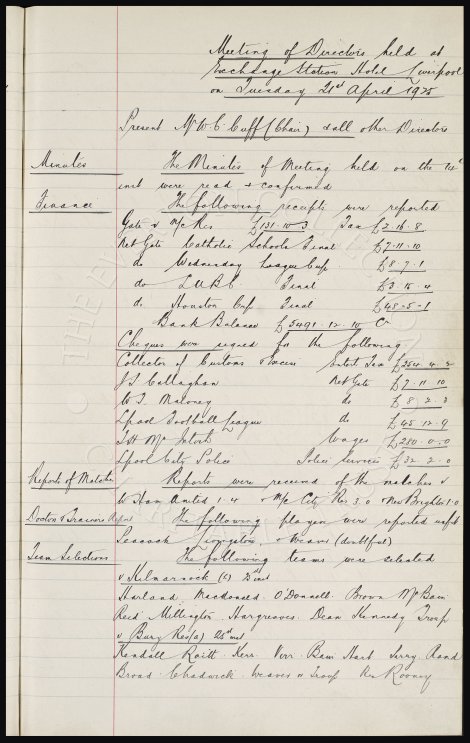 Meeting of Directors held at
Exchange Station Hotel Liverpool
on Tuesday 21st April 1925
Present Mr W. C. Cuff (Chair) & all other Directors
Minutes The Minutes of Meeting held on the
inst were read & confirmed
Finance The following receipts were reported
Gate v M/c Res £131.10.3 Tax £2.16.8
Net Gate Catholic Schools Final £7.11.10
do Wednesday League Cup £8.7.1
do Final £3.15.4
do Houston Cup Final £48.5.1
Bank Balance £5491.12.10
Cheques were signed for the following
Collector of Customs & Excise Entert Tax £354.4.2
J S Callaghan Net Gate £7.11.10
W J Maloney do £8.2.3
Lpool Football League do £45.12.9
McIntosh Wages £280.0.0
Lpool City Police Police Services £32.2.0
Reports of Matches Reports were received of the matches v
W Ham United 1-4 v M/c City Res 3.0 v New Brighton 1.0
Doctor & Trainers Report The following players were reported unfit
Peacock Livingstone & Weaver (doubtful)
Team Selections The following teams were selected
v Kilmarnock 
Harland Macdonald O'Donnell Brown McBain
Reid Millington Hargreaves Dean Kennedy Troup
v Bury Res (a) 25th inst
Kendall Raitt Kerr Virr Bain Hart Parry Rand
Broad Chadwick Weaver or Troup Res Rooney